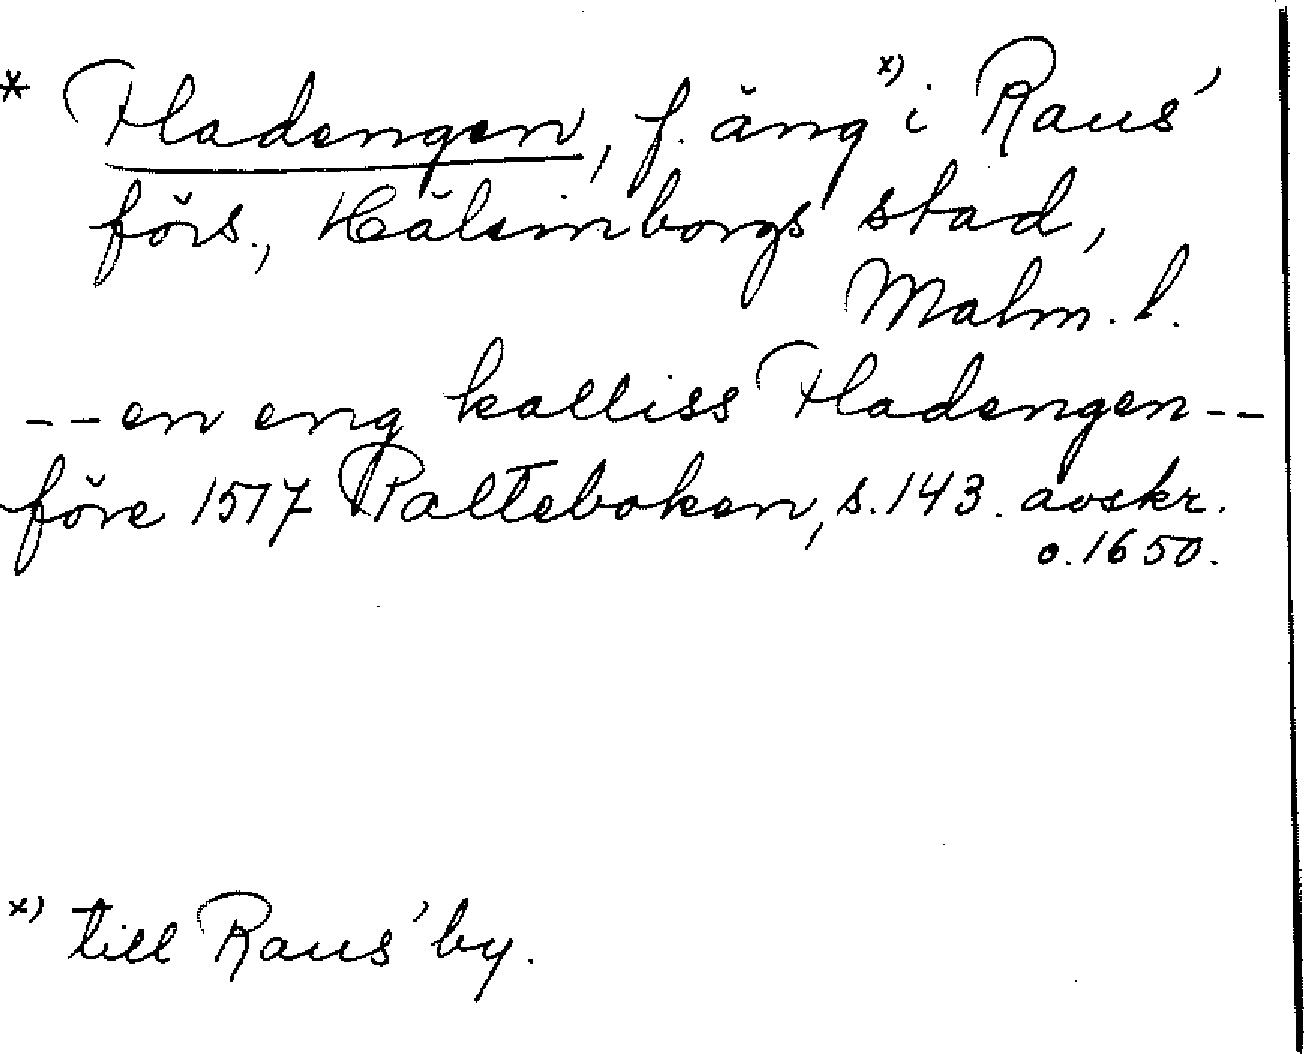 * Fladengen, f. äng x) i Raus'
förs., Hälsinborgs stad,
Malm. l.
-- en eng kalliss Fladengen --
före 1517 Palteboken, s. 143. avskr.
o. 1650.
x) till Raus' by.